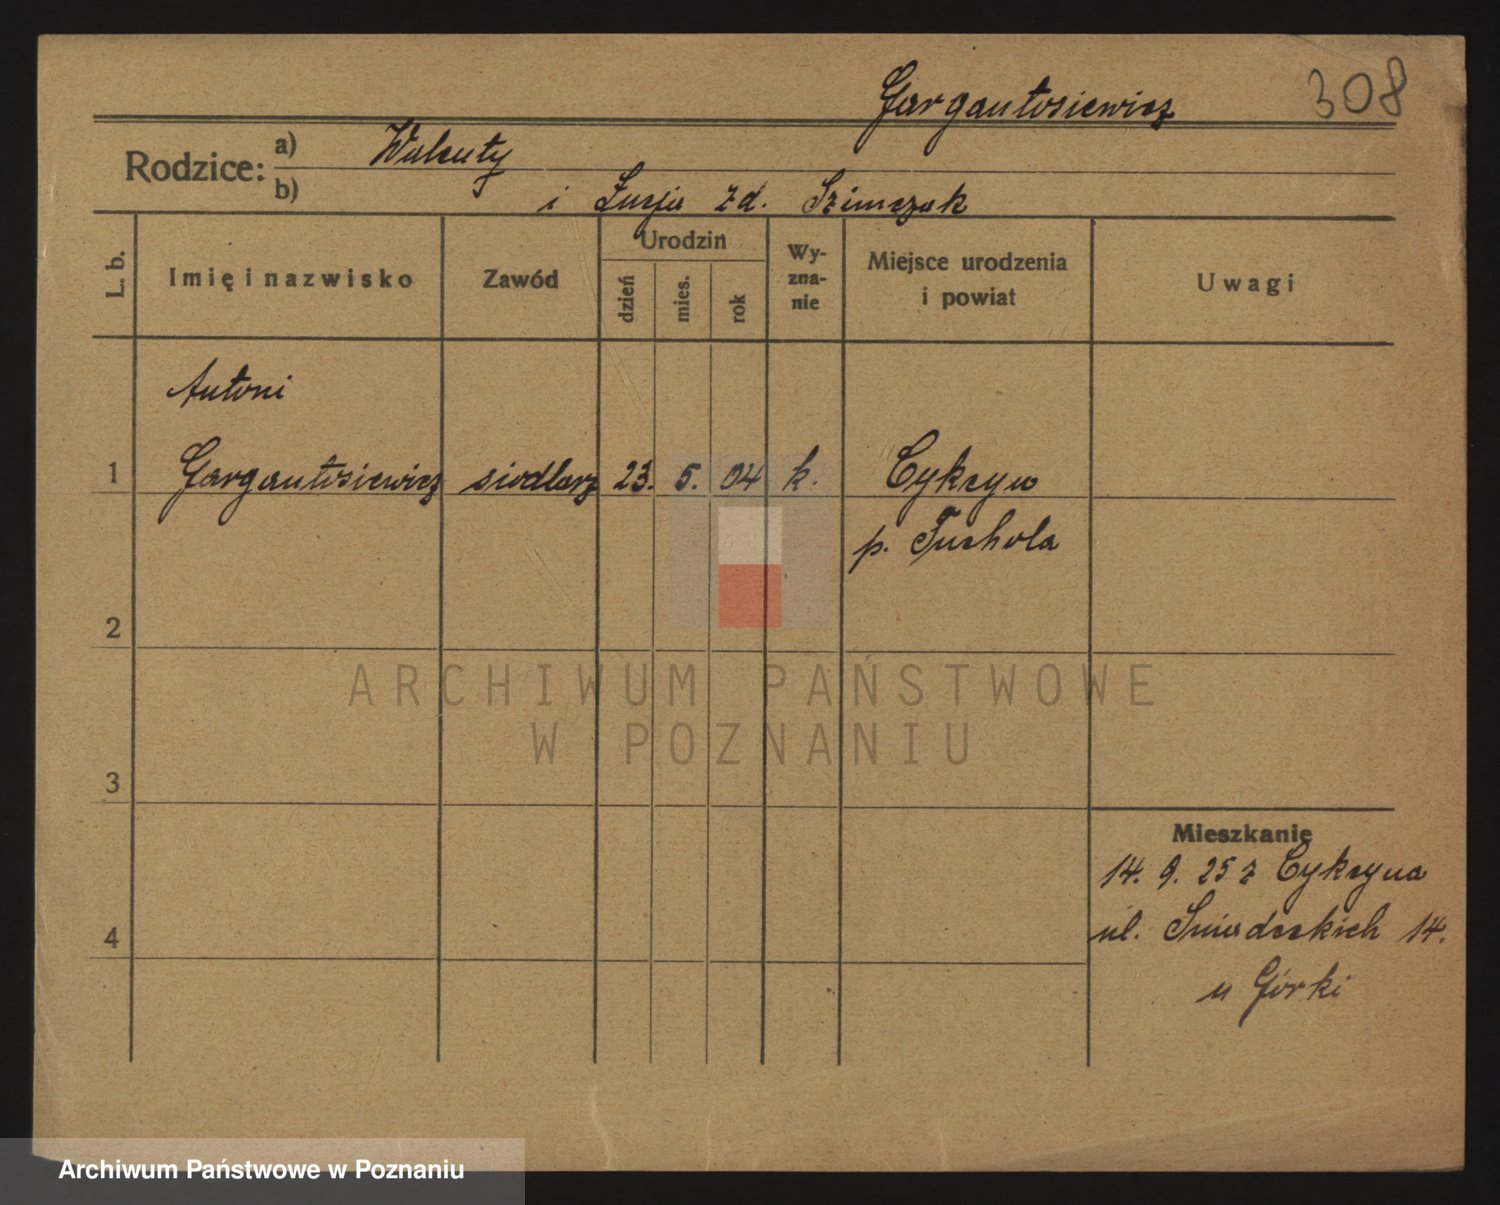 Gargantosiewicz 308
Rodzice: a) Walenty
b) i Łucja zd. Szimczak
L. b. Imię i nazwisko Zawód Urodzin dzień mies. rok Wy-zna-nie Miejsce urodzenia i powiat Uwagi
Antoni
1 Gargantosiewicz siodlarz 23. 5. 04 k. Cykcyn
p. Tuchola
2
ARCHIWUM PAŃSTWOWE
W POZNANIU
3
Mieszkanie
14. 9. 25 z Cykcyna
4 ul. Śniadeckich 14.
u Górki
Archiwum Państwowe w Poznaniu